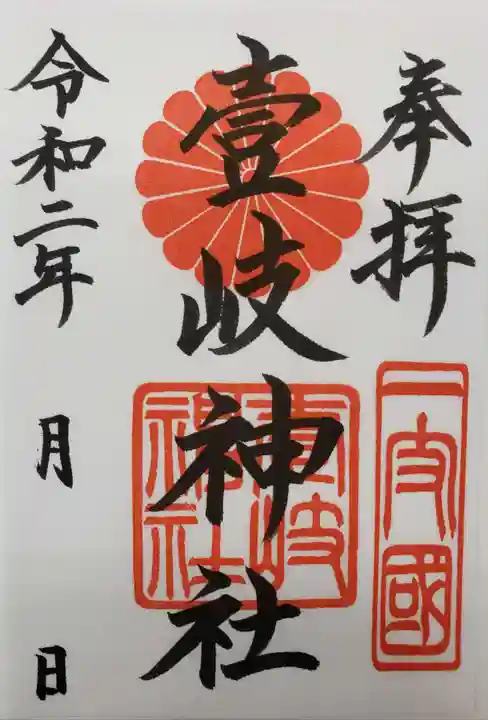 奉拝
一支國
壹岐神社
壹岐
神社
令和二年 月 日